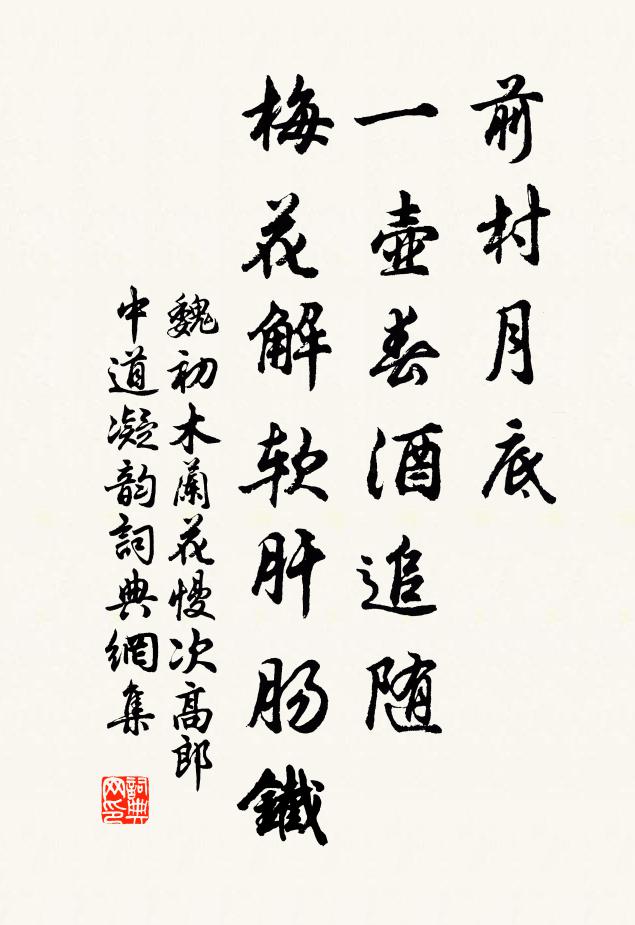 前村月底
一壶春酒追随
梅花解软肝肠鐵
魏初木蘭花慢次高郎
中道凝韵詞典網集
詞典网印